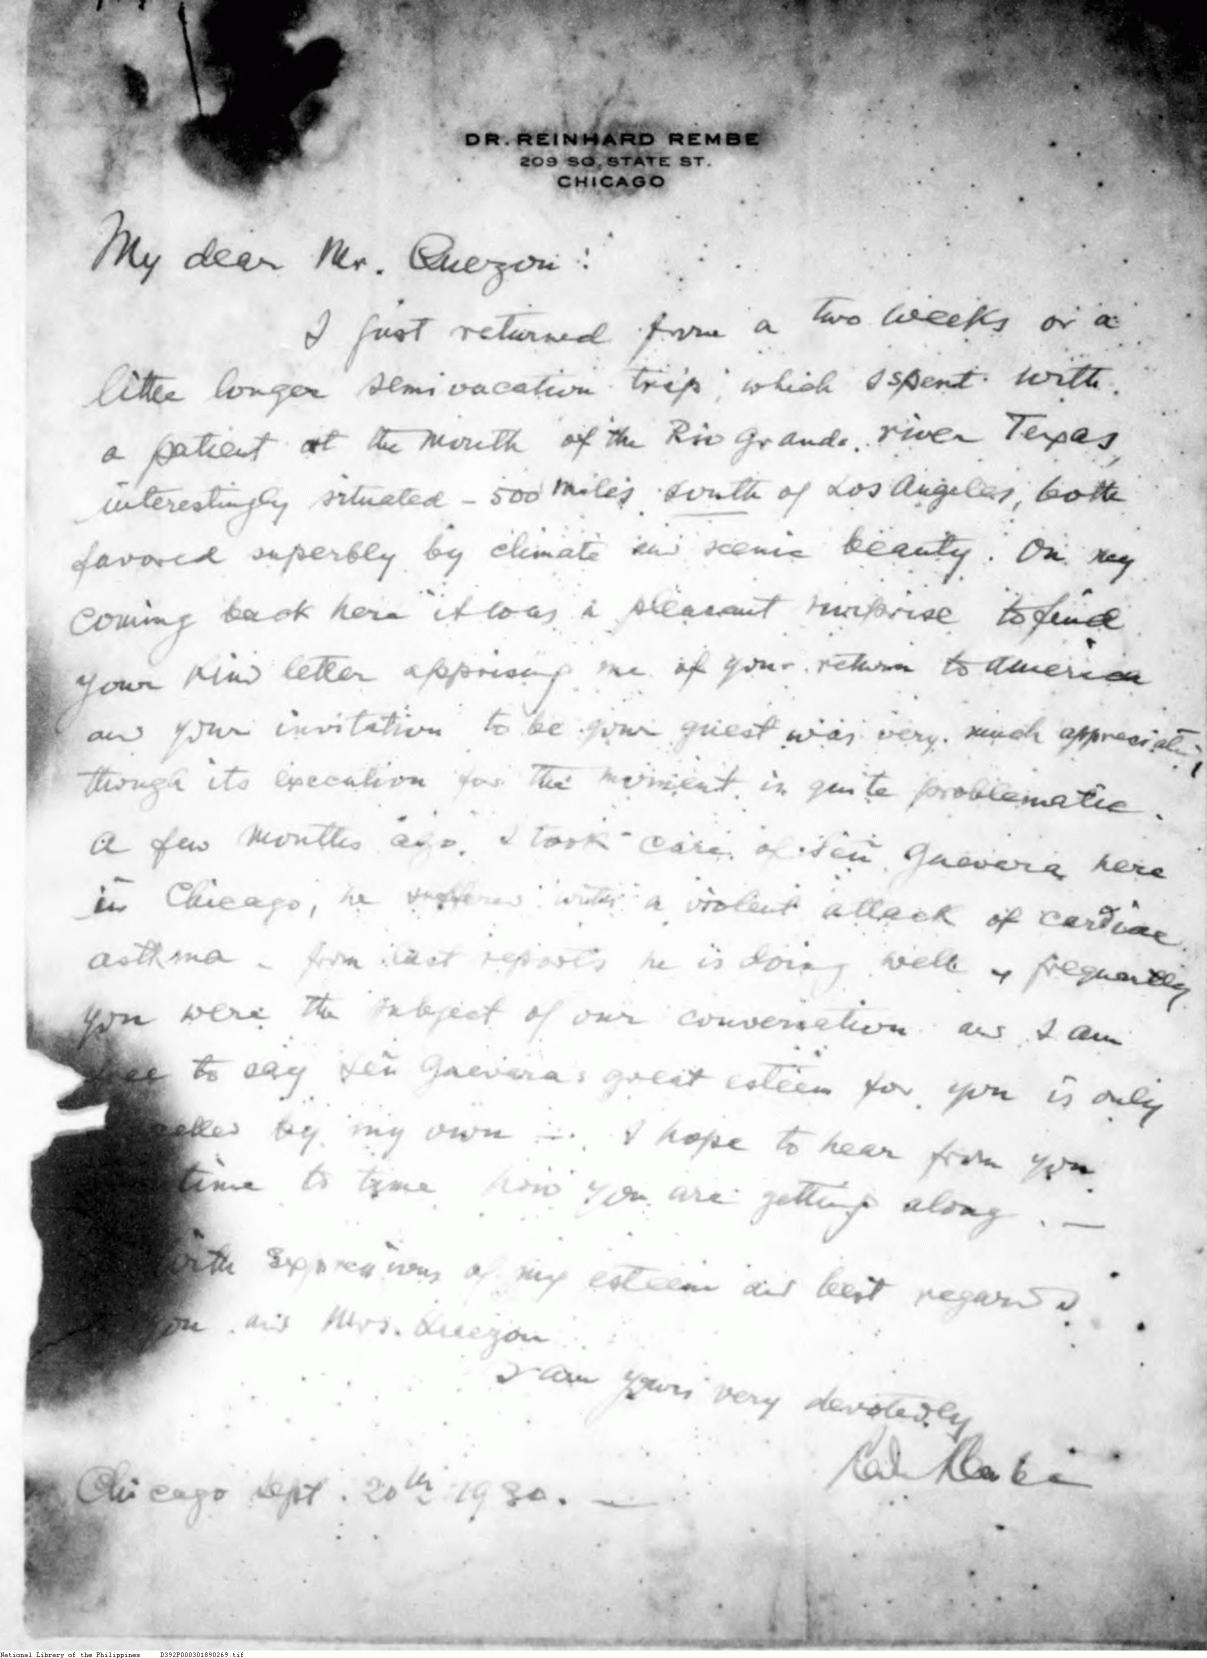 DR. REINHARD REMBE
209 SO. STATE ST.
CHICAGO
My dear Mr. Quezon:
I just returned from a two weeks or a
little longer semivacation trip, which I spent with
a patient at the mouth of the Rio Grande river Texas,
interestingly situated – 500 miles south of Los Angeles, both
favored superbly by climate and scenic beauty. On my
coming back here it was a pleasant surprise to find
your kind letter apprising me of your return to America
and your invitation to be your guest was very much appreciated,
though its execution for the moment is quite problematic.
A few months ago I took care of Señ Guevera here
in Chicago, he suffered with a violent attack of cardiac
asthma – from last reports he is doing well & frequently
you were the subject of our conversation and I am
to say Señ Guevara's great esteem for you is only
by my own –. I hope to hear from you
time to time how you are getting along. —
with expressions of my esteem and best regards
and Mrs. Quezon
I am yours very devotedly
Rembe
Chicago Sept. 20th 1930. —
National Library of the Philippines D392P000301890269.tif